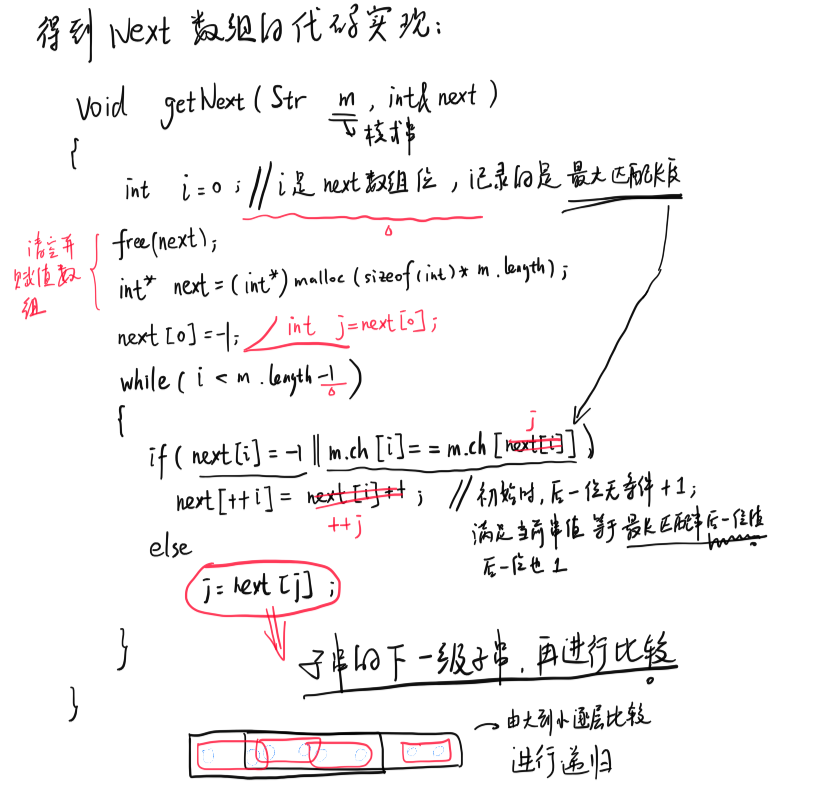 得到 Next 数组的代码实现：
void getNext ( Str m , int& next )
模式串
{
int i=0 ; // i是 next数组位 , 记录的是 最大匹配长度
清空并
赋值数
组
free(next);
int* next=(int*) malloc (sizeof(int)* m.length);
next [0] =-1; int j=next[0];
while ( i < m .length -1 )
{
j
if ( next[i] = -1 || m.ch [i] == m.ch [next[i]] )
next[++i] = next[i]++ ; // 初始时, 后一位无条件+1;
++j
满足当前串值 等于 最长匹配串后一位值
后一位也 1
else
j= next [j] ;
}
子串的下一级子串, 再进行比较
}
由大到小逐层比较
进行递归